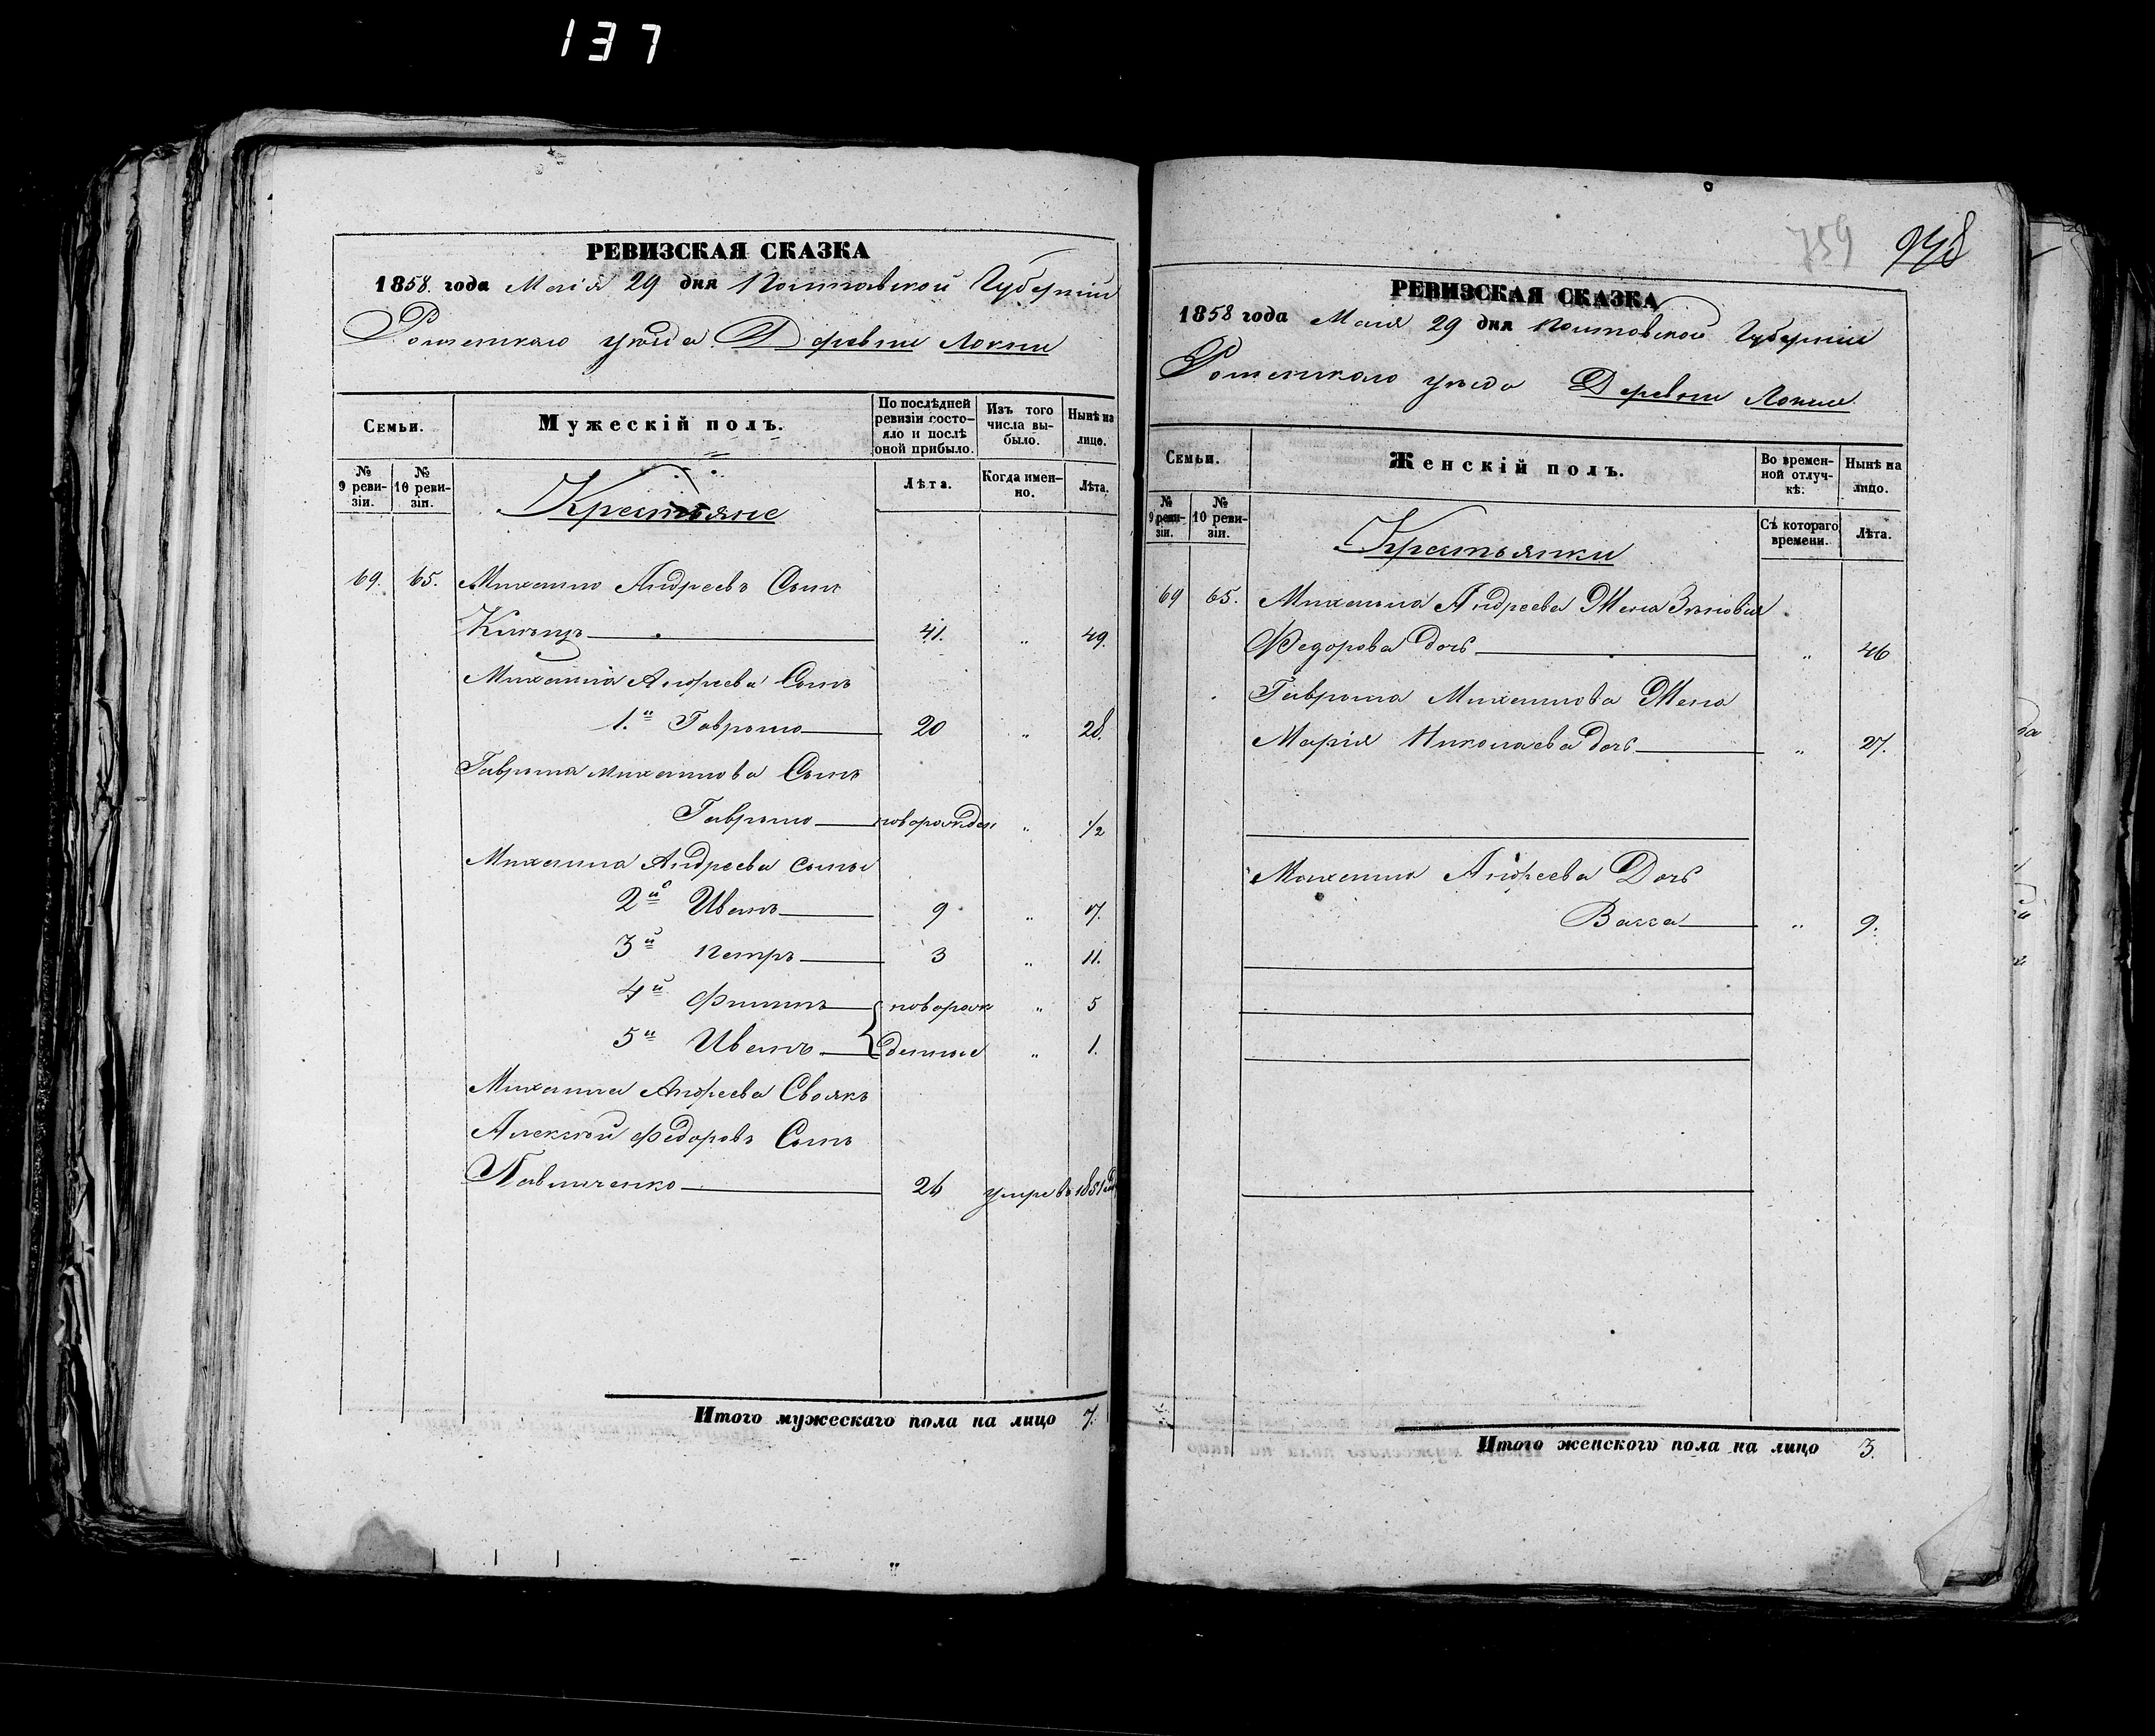 137
РЕВИЗСКАЯ СКАЗКА
1858 года Маія 29 дня Полтавской Губерніи
Роменскаго уѣзда Деревни Локни
Семьи.
Мужескій полъ.
По послѣдней ревизіи состояло и послѣ оной прибыло.
Изъ того числа выбыло.
Нынѣ на лицо.
№ 9 ревизіи.
№ 10 ревизіи.
Крестьяне
Лѣта.
Когда именно.
Лѣта.
69. 65. Михайло Андреевъ Сынъ
41. " 49.
Михайла Андреева Сынъ
1.й Гаврыло 20 " 28.
Гаврыла Михайлова Сынъ
Гаврыло новорожден " 1/2
Михайла Андреева сыны
2й Иванъ 9 " 17.
3й Петръ 3 " 11.
4й Филипъ новорож " 5
5й Иванъ денные " 1.
Михайла Андреева Своякъ
Алексѣй Федоровъ Сынъ
Павличенко 26 умре въ 1851 год
Итого мужескаго пола на лицо 7.
759 948
РЕВИЗСКАЯ СКАЗКА
1858 года Маія 29 дня Полтавской Губерніи
Роменскаго уѣзда Деревни Локни
Семьи.
Женскій полъ.
Во временной отлучкѣ.
Нынѣ на лицо.
№ 9 ревизіи.
№ 10 ревизіи.
Крестьянки
Съ котораго времени.
Лѣта.
69 65. Михайла Андреева Жена Зѣновія
Федорова дочь " 46
Гаврыла Михайлова Жена
Марія Николаева дочь " 27.
Михайла Андреева Дочь
Васса " 9.
Итого женского пола на лицо 3.